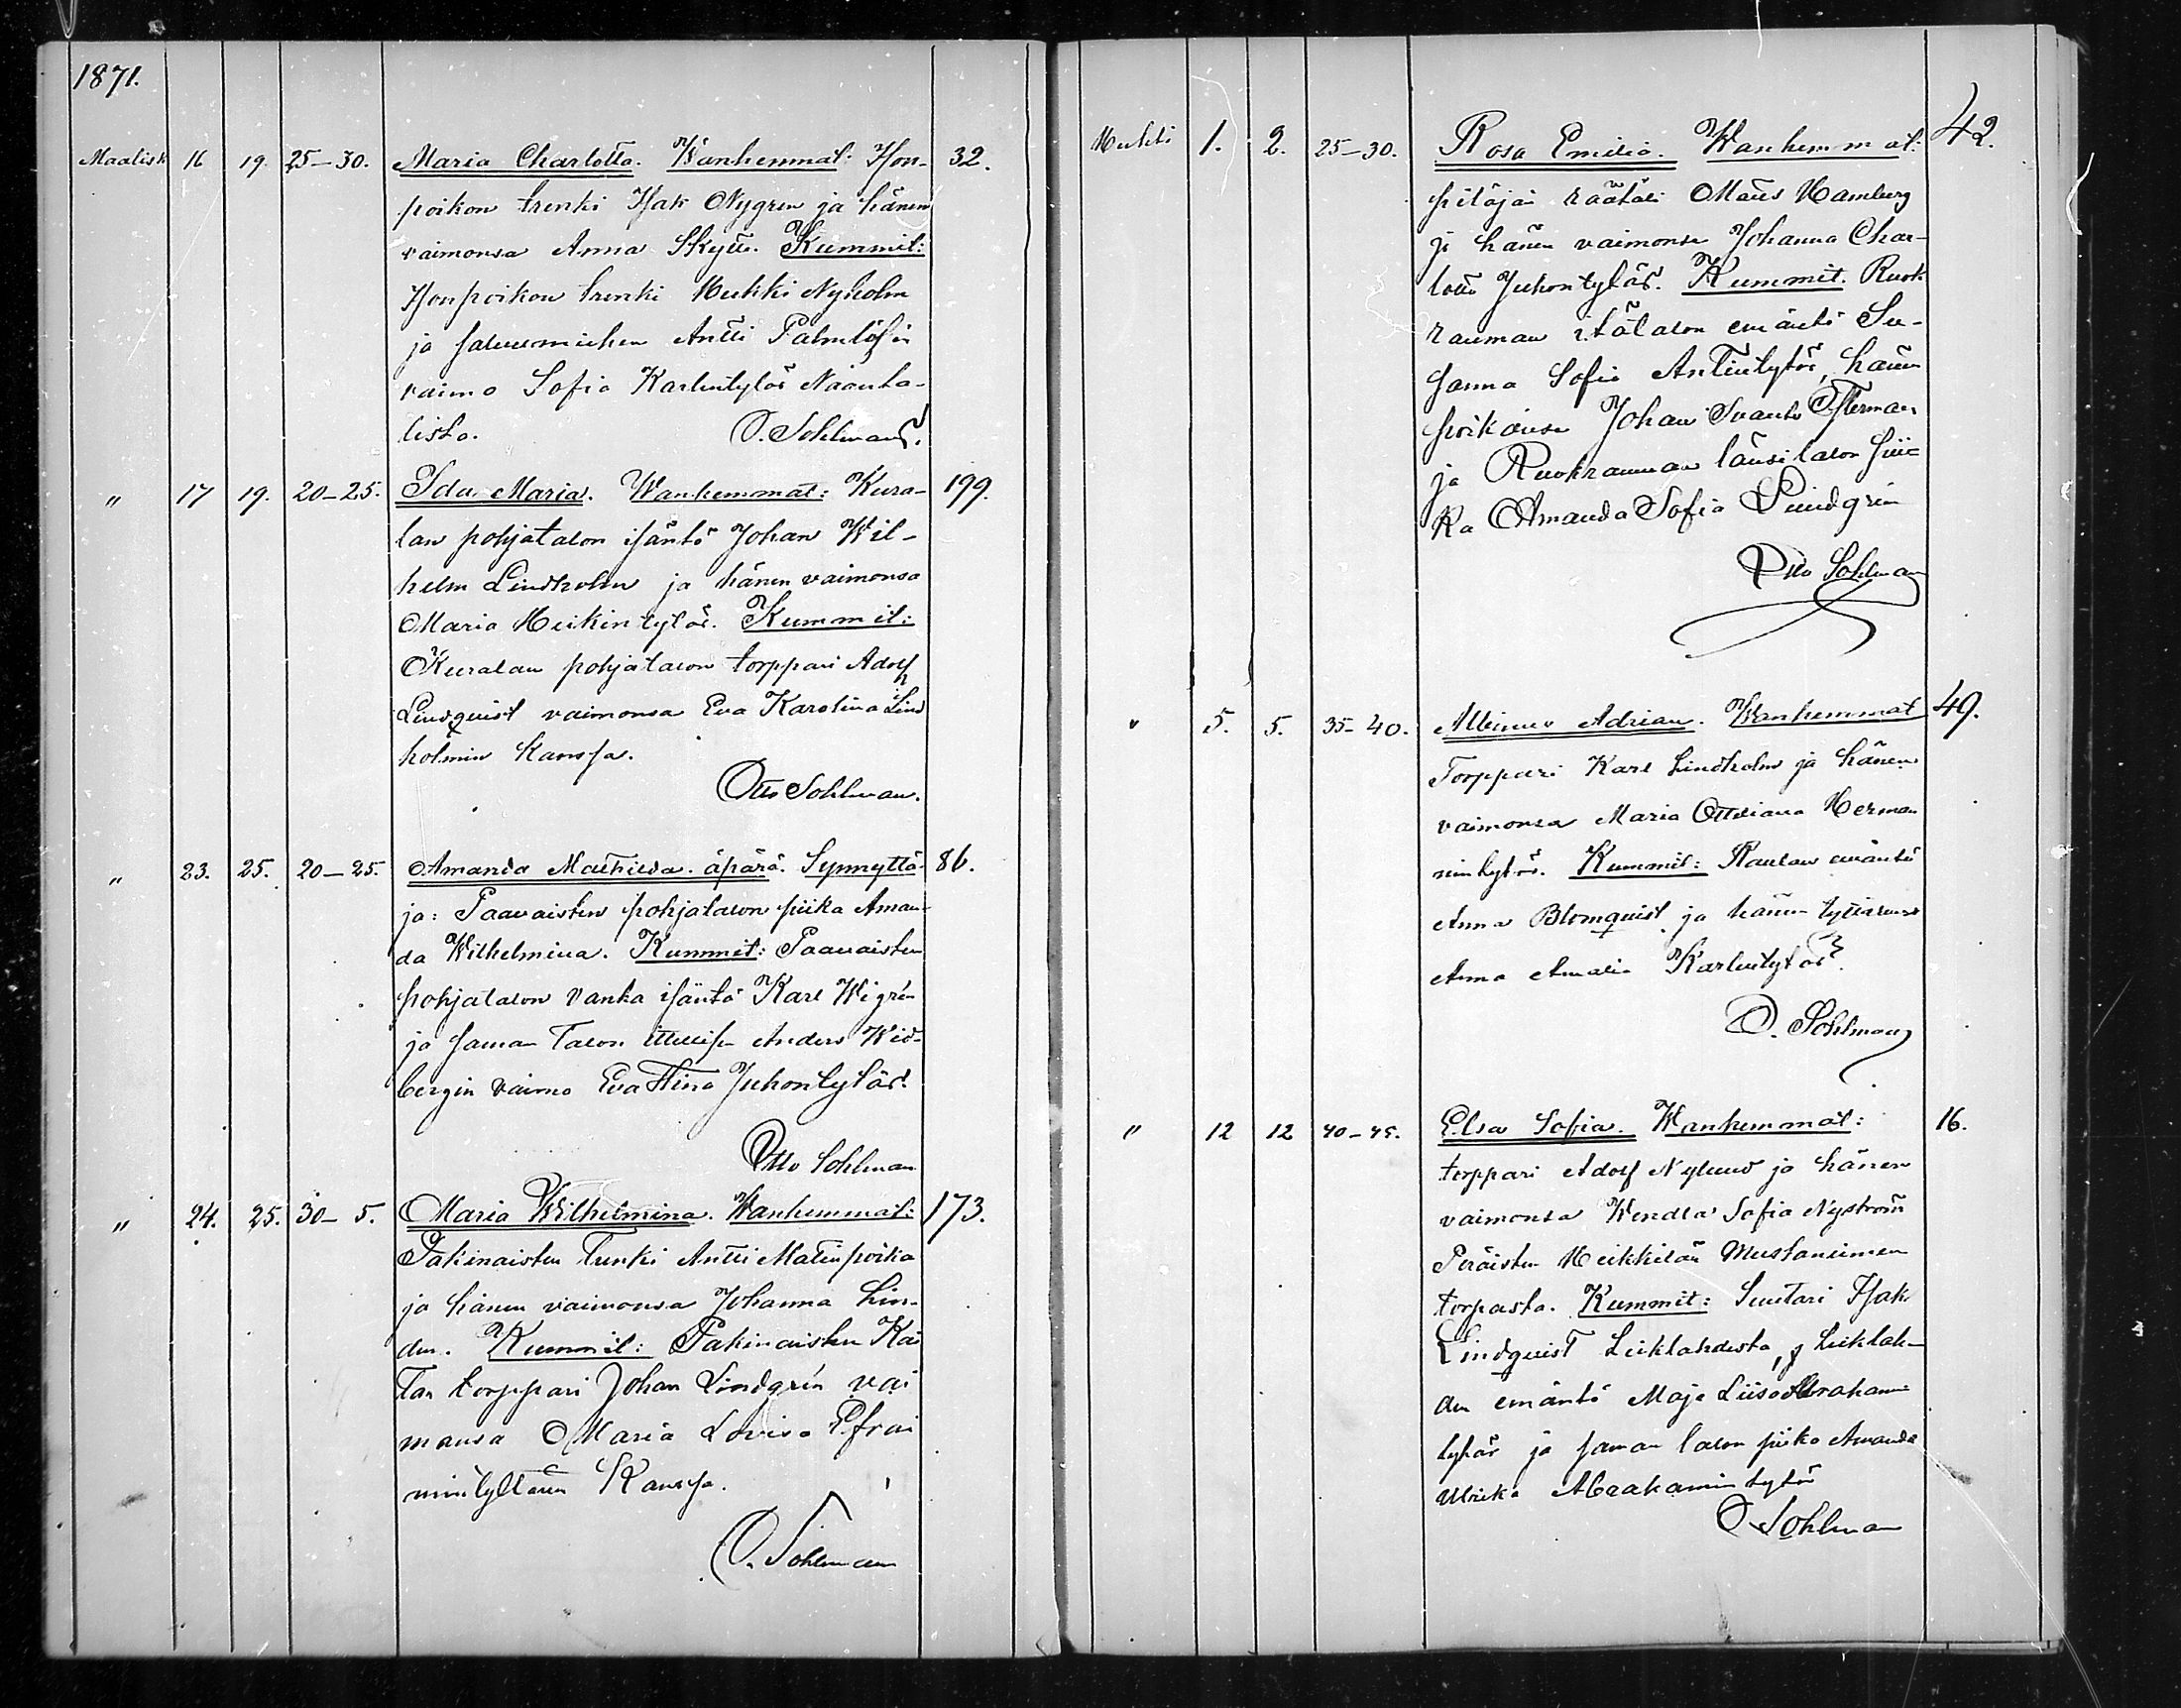 1871.
Maalisk 16 19. 25–30. Maria Charlotta. Wanhemmat: Hon- 32.
poikon trenki Isak Nygren ja hänen
vaimonsa Anna Skytte. Kummit:
Honpoikon trenki Heikki Nyholm
ja salvumiehen Antti Palmlöfin
vaimo Sofia Karlentytär Naanta-
lista. O. Sohlman.
" 17 19. 20–25. Ida Maria. Wanhemmat: Kura- 199.
lan pohjatalon isäntä Johan Wil-
helm Lindholm ja hänen vaimonsa
Maria Heikintytär. Kummit:
Kuralan pohjatalon torppari Adolf
Lindquist vaimonsa Eva Karolina Lind
holmin kanssa.
Otto Sohlman.
" 23. 25. 20–25. Amanda Mathilda. äpärä. Synnyttä- 86.
jä: Paavaisten pohjatalon piika Aman-
da Wilhelmina. Kummit: Paavaisten
pohjatalon vanha isäntä Karl Wigrén
ja saman talon Anders Wid-
bergin vaimo Eva Stina Juhontytär.
Otto Sohlman
" 24. 25. 30– 5. Maria Wilhelmina. Wanhemmat: 173.
Pakinaisten trenki Antti Matinpoika
ja hänen vaimonsa Johanna Lin-
den. Kummit: Pakinaisten
torppari Johan Lindgrén vai
monsa Maria Lovisa Efrai
mintyttären Kanssa.
O. Sohlman
Huhti 1. 2. 25–30. Rosa Emilia. Wanhemmat: 42.
pitäjän räätäli Mats Hamberg
ja hänen vaimonsa Johanna Char-
lotta Juhontytär. Kummit. Ruok
rauman itätalon emäntä Su-
sanna Sofia Antintytär, hänen
poikansa Johan Svante Österman
ja Ruokrauman länsitalon pii-
ka Amanda Sofia Lindgrén
Otto Sohlman
" 5. 5. 35–40. Adrian. Wanhemmat 49.
Torppari Karl Lindholm ja hänen
vaimonsa Maria Ottiliana Herman
nintytär. Kummit: emäntä
Anna Blomquist ja hänen tyttärensä
Anna Amalia Karlentytär.
O. Sohlman
" 12 12 40–45. Elsa Sofia. Wanhemmat: 16.
torppari Adolf Nylund ja hänen
vaimonsa Wendla Sofia Nyström
Peräisten Heikkilän Mustaniemen
torpasta. Kummit: Suutari Isak
Lindquist Leiklahdesta, ja Leiklah-
den emäntä Maja Liisa Abrahamin
tytär ja saman talon piika Amanda
Ulrika Abrahamintytär
O Sohlman